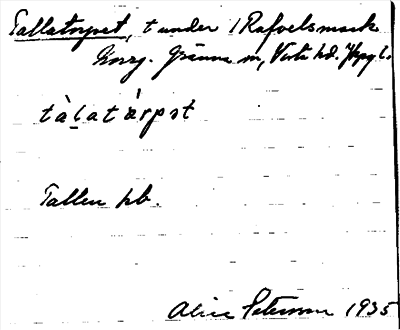 Tallatorpet, t under 1 Rafvelsmark
Norrg. Gränna sn, Vista hd. Jkpg l.
tàlatàrpət
Tallen kb.
Alice Petersson 1935